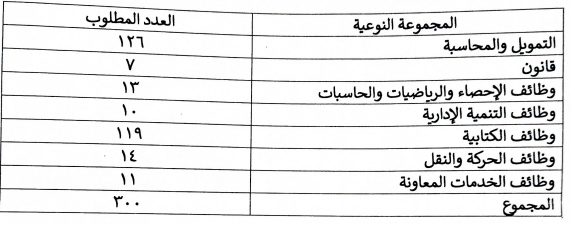 المجموعة النوعية العدد المطلوب
التمويل والمحاسبة ١٢٦
قانون ٧
وظائف الإحصاء والرياضيات والحاسبات ١٣
وظائف التنمية الإدارية ١٠
وظائف الكتابية ١١٩
وظائف الحركة والنقل ١٤
وظائف الخدمات المعاونة ١١
المجموع ٣٠٠